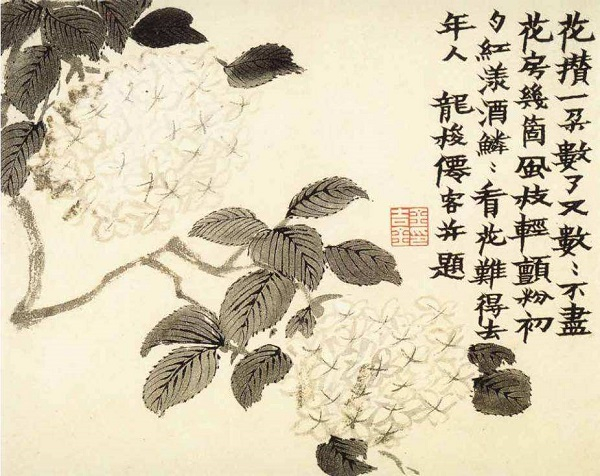 花攢一朵數了又數〻不盡
花房幾箇風枝輕顫粉初
勻紅漾酒鱗〻看花難得去
年人 龍梭僊客并題